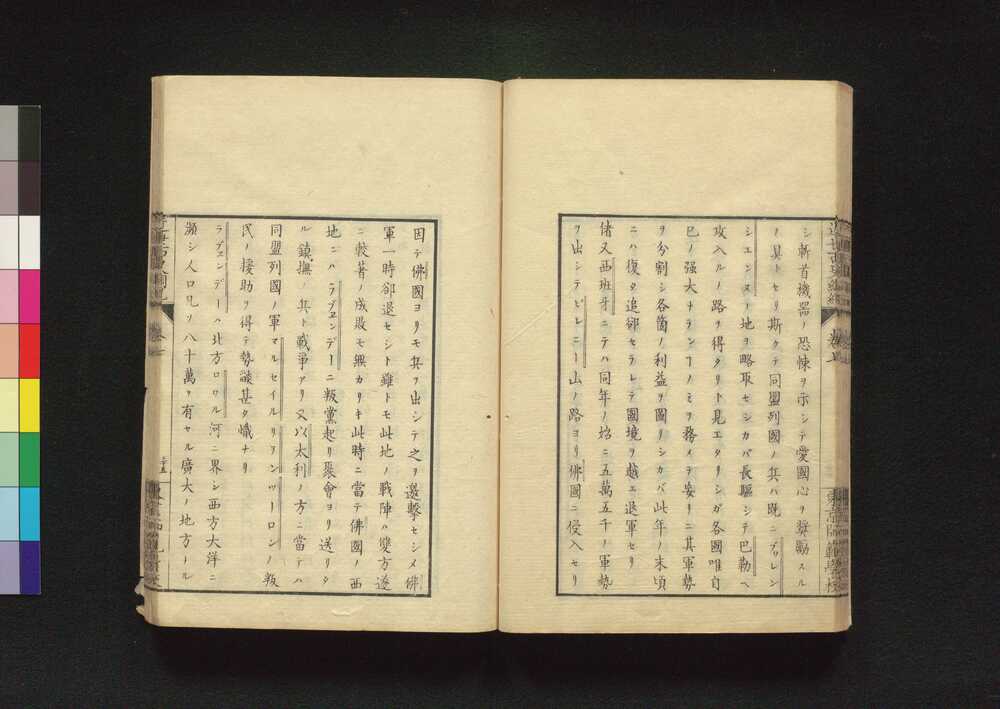 シ斬首機器ノ恐怖ヲ示シテ愛國心ヲ奨勵スル
ノ具トセリ斯クテ同盟列國ノ兵ハ既ニブァレン
シエンヌノ地ヲ略取セシカバ長驅シテ巴勒ヘ
攻入ルノ路ヲ得タリト見エタリシガ各國唯自
己ノ强大ナランヿノミヲ務メテ妄リニ其軍勢
ヲ分割シ各箇ノ利益ヲ圖リシカバ此年ノ末頃
ニハ復タ追卻セラレテ國境ヲ越エ退軍セリ
偖又西班牙ニテハ同年ノ始ニ五萬五千ノ軍勢
ヲ出シテピレニー山ノ路ヨリ佛國ニ侵入セリ
因テ佛國ヨリモ兵ヲ出シテ之ヲ邀擊セシメ佛
軍一時卻退セシト雖トモ此地ノ戰陣ハ雙方遂
ニ較著ノ成敗モ無カリキ此時ニ當テ佛國ノ西
地ニハラブェンデーニ叛黨起リ聚會ヨリ送リタ
ル鎭撫ノ兵ト戰爭アリ又以太利ノ方ニ當テハ
同盟列國ノ軍マルセイルリヲンツーロンノ叛
民ノ援助ヲ得テ勢燄甚タ熾ナリ
ラブェンデーハ北方ロワル河ニ界シ西方大洋ニ
瀕シ人口凡ソ八十萬ヲ有セル廣大ノ地方ール